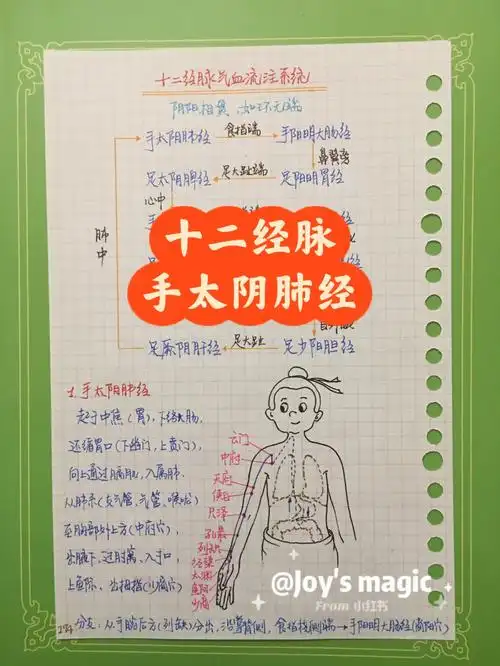 十二经脉气血流注系统
阴阳相贯,如环无端
手太阴肺经 食指端 手阳明大肠经
鼻翼旁
足太阴脾经 足大趾端 足阳明胃经
心中
肺中
十二经脉
手太阴肺经
足厥阴肝经 足大趾 足少阳胆经
1. 手太阴肺经
起于中焦(胃),下络大肠,
还循胃口(下幽门,上贲门),
向上通过膈肌,入属肺.
从肺系(支气管、气管、喉咙)
至胸部外上方(中府穴)
出腋下,过肘窝、入寸口
上鱼际,出拇指(少商穴)
云门
中府
天府
侠白
尺泽
孔最
列缺
经渠
太渊
鱼际
少商
@Joy's magic
From 小红书
分支:从手腕后方(列缺)分出,沿掌背侧,食指桡侧端→手阳明大肠经(商阳穴)